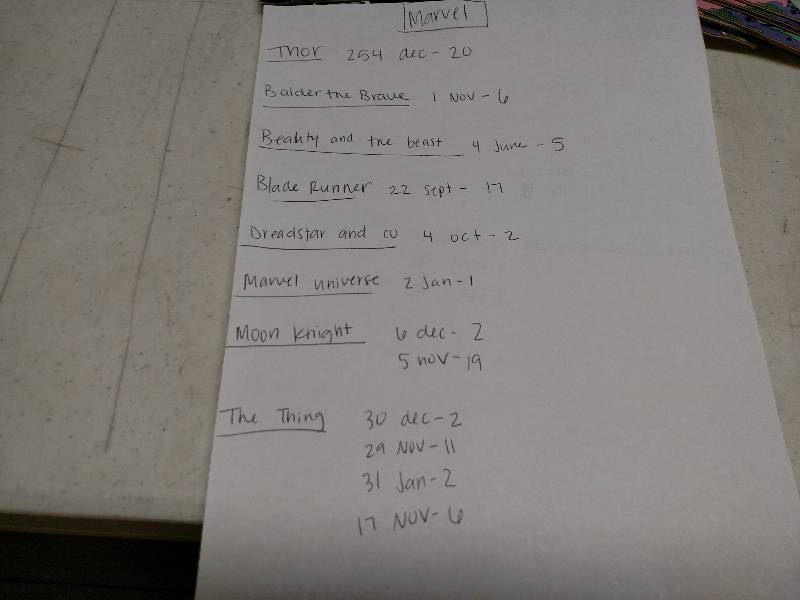 Marvel
Thor 254 dec - 20
Balder the Brave 1 Nov - 6
Beauty and the beast 4 June - 5
Blade Runner 22 sept - 17
Dreadstar and co 4 oct - 2
Marvel universe 2 Jan - 1
Moon Knight 6 dec - 2
5 nov - 19
The Thing 30 dec - 2
29 Nov - 11
31 Jan - 2
17 Nov - 6